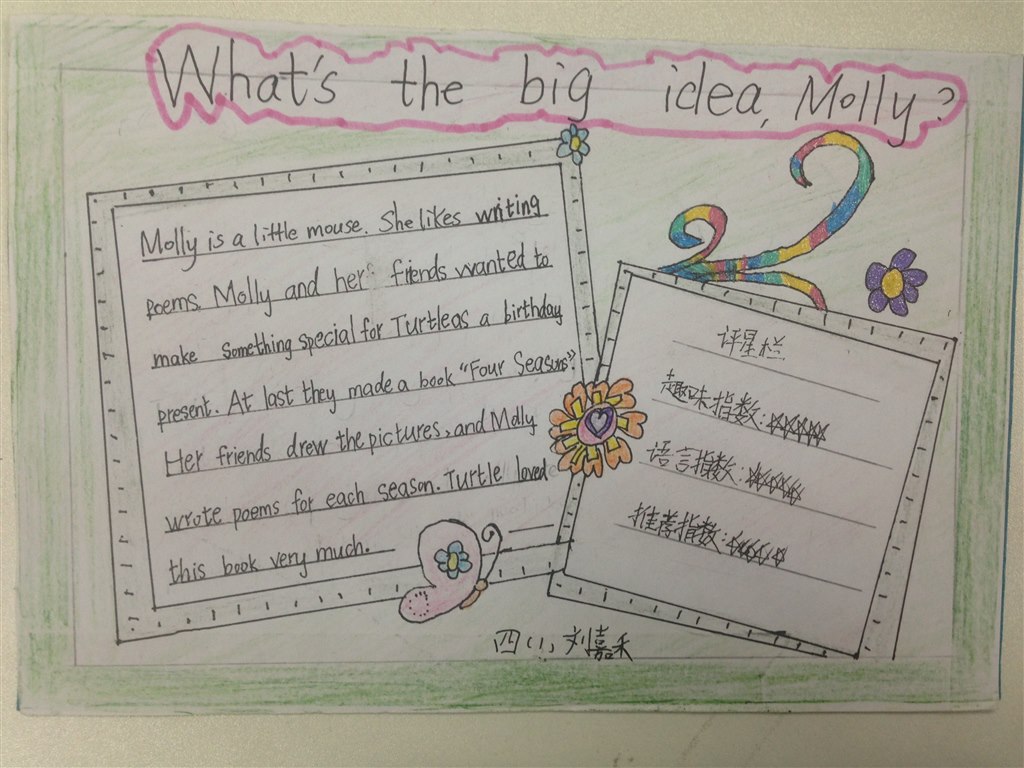 What's the big idea, Molly?
Molly is a little mouse. She likes writing
poems. Molly and her friends wanted to
make something special for Turtle as a birthday
present. At last they made a book "Four Seasons".
Her friends drew the pictures, and Molly
wrote poems for each season. Turtle loved
this book very much.
评星栏
趣味指数:☆☆☆☆☆
语言指数:☆☆☆☆☆
推荐指数:☆☆☆☆☆
四(1)刘嘉禾